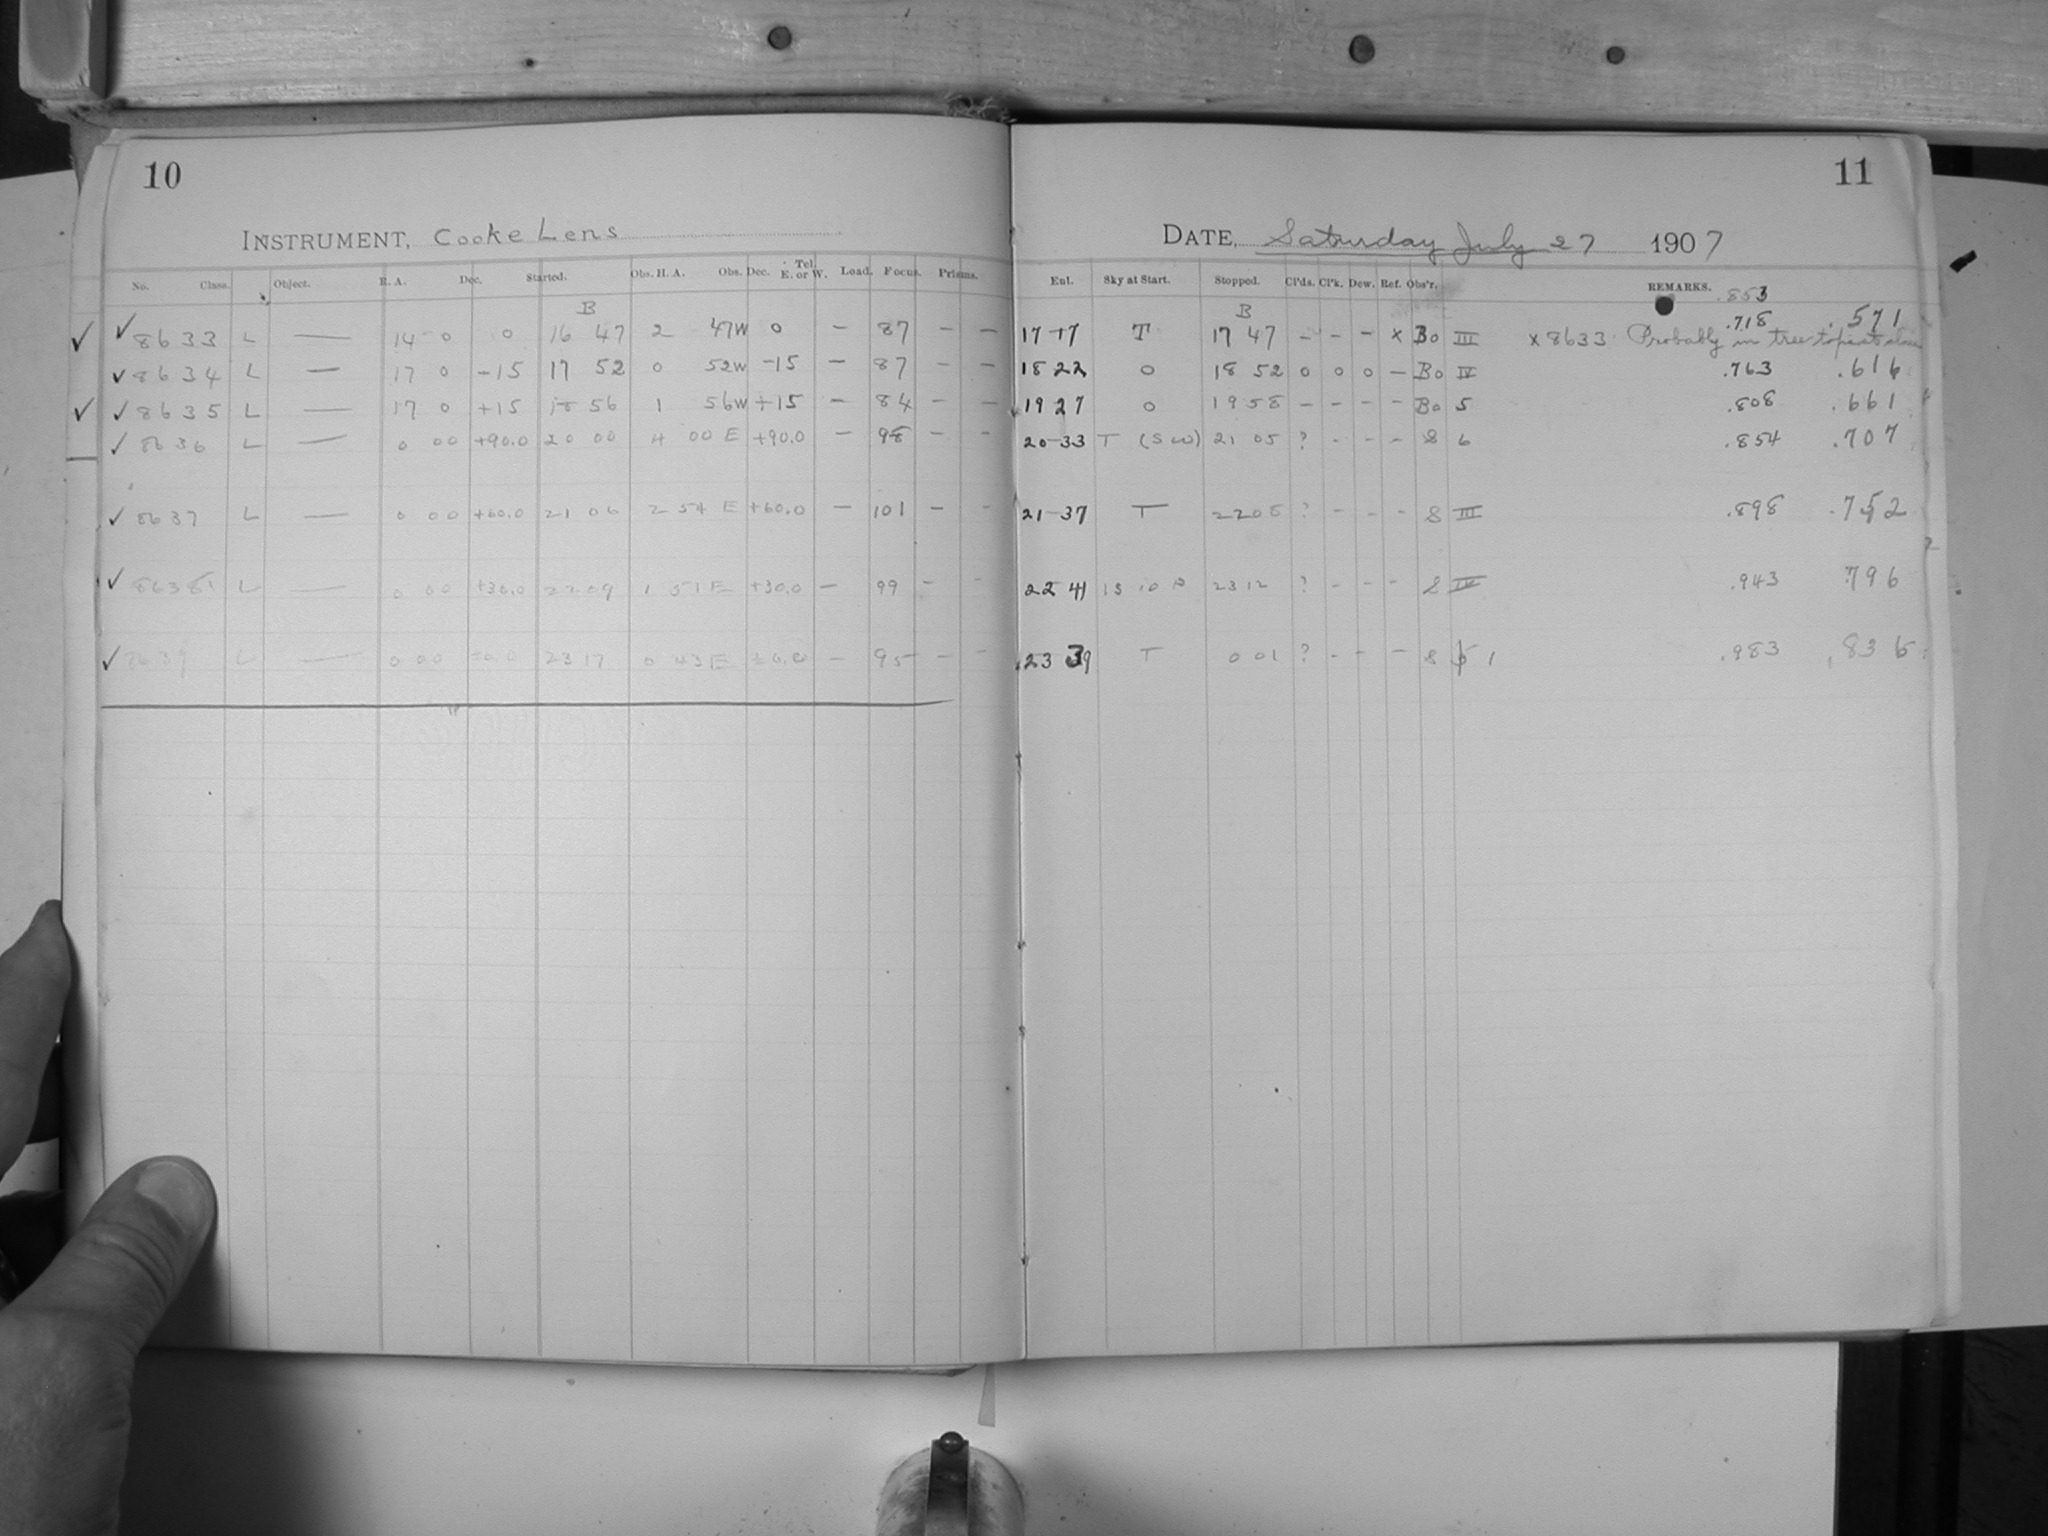 10
INSTRUMENT, Cooke Lens
No. Class. Object. R. A. Dec. Started. Obs. H. A. Obs. Dec. Tel. E. or W. Load. Focus. Prisms.
B
✓ ✓ 8633 L — 14 0 0 16 47 2 47W 0 — 87 — —
✓ 8634 L — 17 0 -15 17 52 0 52W -15 — 87 — —
✓ ✓ 8635 L — 17 0 +15 18 56 1 56W +15 — 84 — —
✓ 8636 L — 0 00 +90.0 20 00 4 00 E +90.0 — 98 — -
✓ 8637 L — 0 00 +60.0 21 06 2 54 E +60.0 — 101 — -
✓ L — 0 00 +30.0 22 09 1 51 E +30.0 — 99 - -
✓ 8639 L — 0 00 23 17 0 43 E — 95 — -
11
DATE, Saturday July 27 1907
Ent. Sky at Start. Stopped. Cl'ds. Cl'k. Dew. Ref. Obs'r. REMARKS.
.853
B
17 17 T 17 47 - - - x Bo III x 8633 Probably in tree tops at close .718 .571
18 22 0 18 52 0 0 0 — Bo IV .763 .616
19 27 0 19 58 - - - - Bo 5 .808 .661
20-33 T (SW) 21 05 ? - - - S 6 .854 .707
21-37 T 22 08 ? - - - S III .898 .752
22 41 23 12 ? - - - S IV .943 .796
23 39 T 0 01 ? - - - S 1 .983 .836